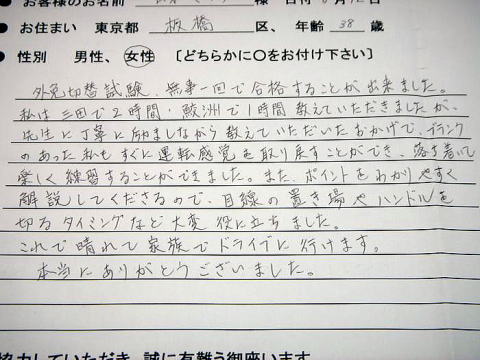 ● お客様のお名前 様 日付
● お住まい 東京都 板橋 区、年齢 38 歳
● 性別 男性、女性 〔どちらかに〇をお付け下さい〕
外免切替試験、無事一回で合格することが出来ました。
私は三田で2時間・鮫洲で1時間教えていただきましたが、
先生に丁寧に励ましながら教えていただいたおかげで、ブランク
のあった私もすぐに運転感覚を取り戻すことができ、落ち着いて
楽しく練習することができました。また、ポイントをわかりやすく
解説してくださるので、目線の置き場やハンドルを
切るタイミングなど大変役に立ちました。
これで晴れて家族でドライブに行けます。
本当にありがとうございました。
協力していただき、誠に有難う御座います